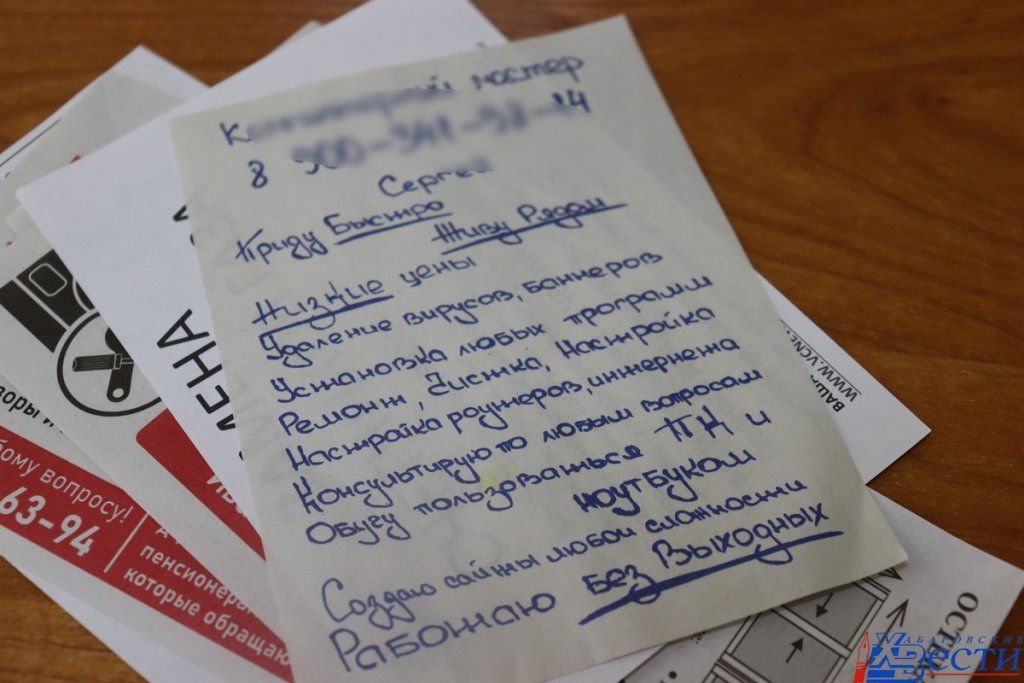 мастер
8
14
Сергей
Приду Быстро
Живу Рядом
Низкие цены
Удаление вирусов, баннеров
Установка любых программ
Ремонт, Чистка, Настройка
Настройка роутеров, интернета
Консультирую по любым вопросам
Обучу пользоваться ПК и
ноутбуком
Создаю сайты любой сложности
Работаю без Выходных
МЕНА
ому вопросу!
63-94
пенсионера
которые обращаю
WWW.VCNE
ХАБАРОВСКИЕ
ВЕСТИ